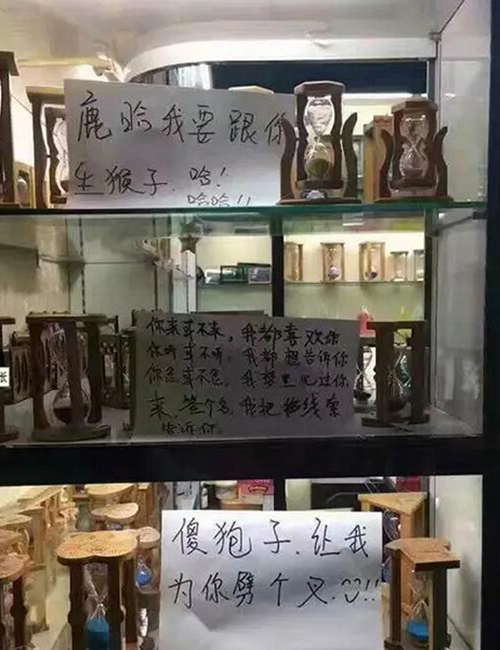 鹿晗我要跟你
生猴子.哈!
哈哈!!
你来或不来，我都喜欢你
你听或不听，我都想告诉你
你忘或不忘，我梦里见过你
来，签个名，我把线索
告诉你.
傻狍子.让我
为你劈个叉.!!